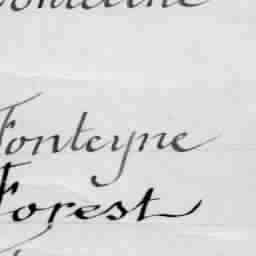 Fonteyne
Forest